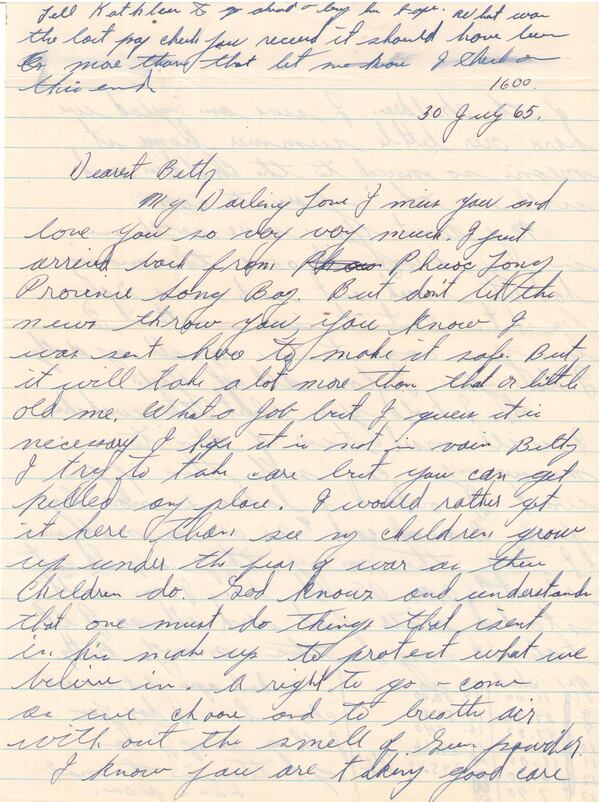 Tell Kathleen to go ahead & buy her What was
the last pay check you received it should have been
more than that let me know I check on
this end.
1600.
30 July 65.
Dearest Betty
My Darling Love I miss you and
love you so very very much. I just
arrived back from Phuoc Long
Provence Song Bay. But don't let the
news throw you, you know I
was sent here to make it safe. But
it will take a lot more than that or little
old me. What a job but I guess it is
necessary I hope it is not in vain Betty
I try to take care but you can get
killed any place. I would rather get
it here than see my children grow
up under the fear of war as these
children do. God knows and understands
that one must do things that isent
in his make up to protect what we
believe in. A right to go - come
as we choose and to breath air
with out the smell of Gun powder.
I know you are taking good care